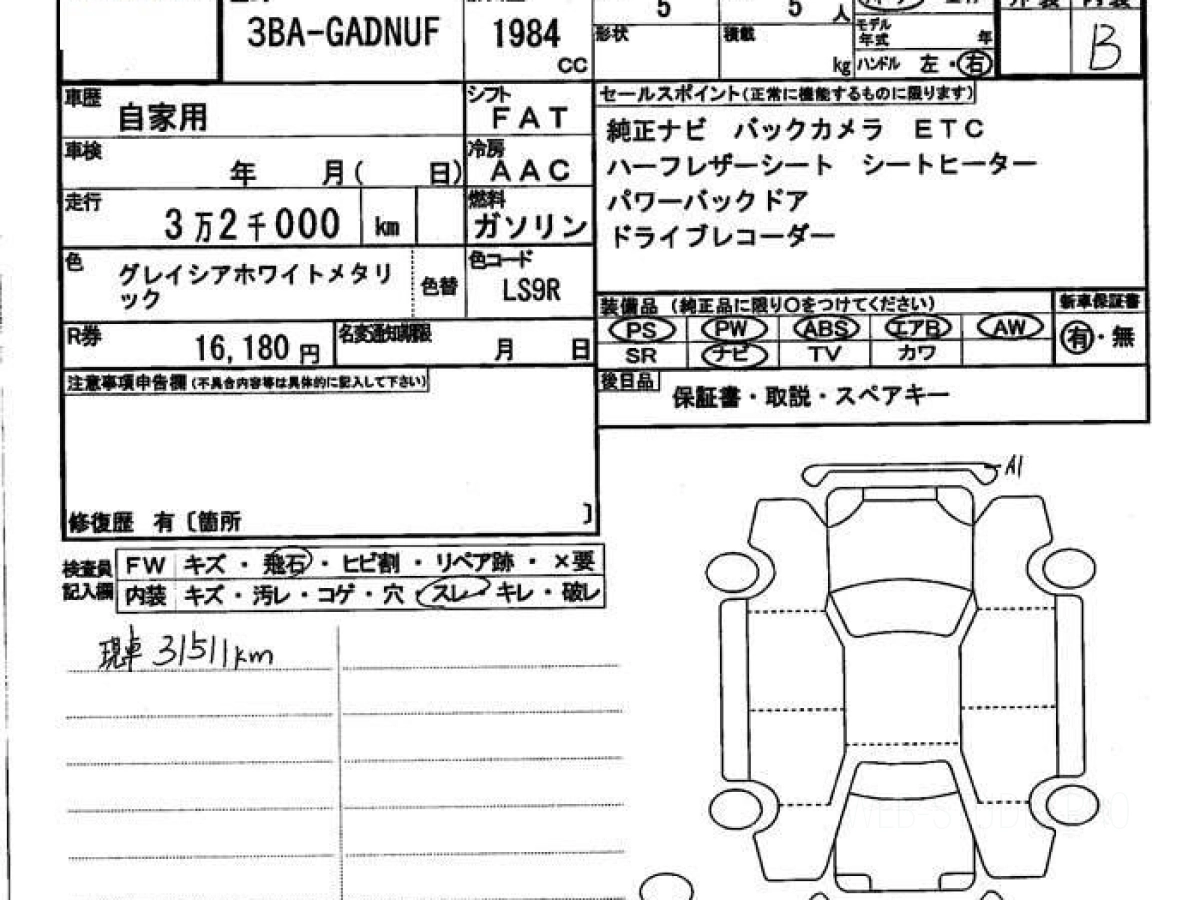 3BA-GADNUF
1984
CC
5
5
人
形状
積載
kg
モデル
年式
年
ハンドル 左・右
B
車歴
自家用
シフト
FAT
車検
年 月( 日)
冷房
AAC
走行
3万2千000 km
燃料
ガソリン
色
グレイシアホワイトメタリ
ック
色替
色コード
LS9R
R券
16,180 円
名変通知期限
月 日
注意事項申告欄(不具合内容等は具体的に記入して下さい)
修復歴 有〔箇所 〕
セールスポイント(正常に機能するものに限ります)
純正ナビ バックカメラ ETC
ハーフレザーシート シートヒーター
パワーバックドア
ドライブレコーダー
装備品 (純正品に限り○をつけてください)
新車保証書
PS PW ABS エアB AW
有・無
SR ナビ TV カワ
後日品
保証書・取説・スペアキー
A1
検査員
記入欄
FW キズ・飛石・ヒビ割・リペア跡・×要
内装 キズ・汚レ・コゲ・穴・スレ・キレ・破レ
現車 31511km